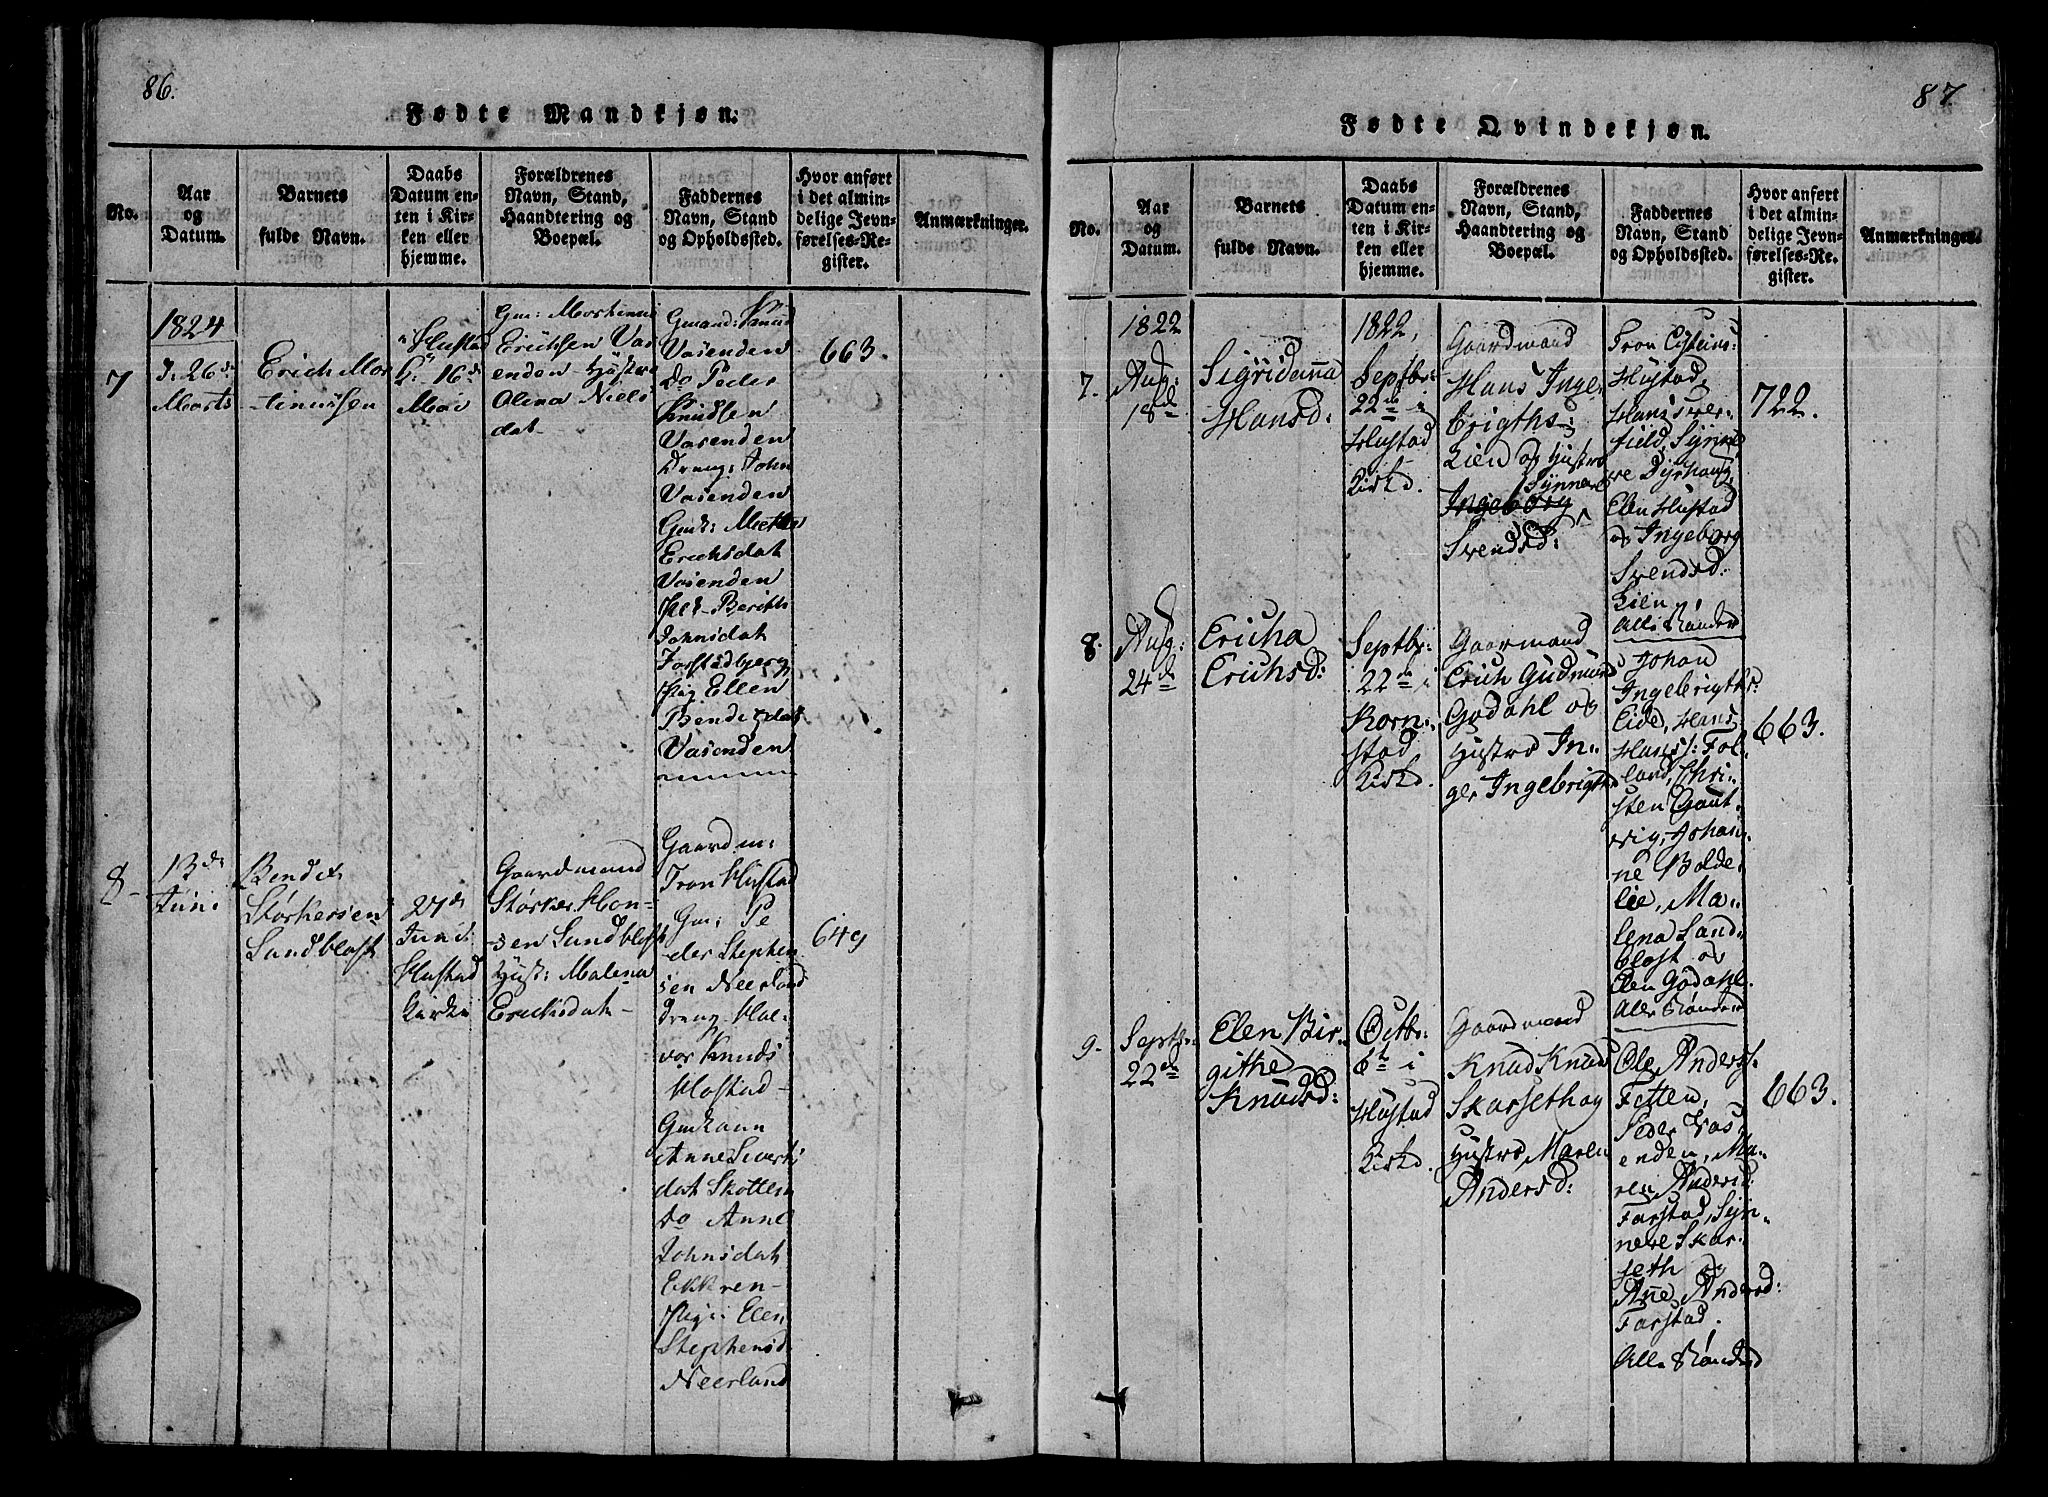 86.
Fødte Mandkjøn.
No.
Aar
og
Datum.
Barnets
fulde Navn.
Daabs
Datum en-
ten i Kir-
ken eller
hjemme.
Forældrenes
Navn, Stand,
Haandtering og
Boepæl.
Faddernes
Navn, Stand
og Opholdssted.
Hvor anført
i det almin-
delige Jevn-
førelses-Re-
gister.
Anmærkninger.
7
1824
D. 26de
Marts
Erich Mor
tinussen
Hustad
16de
Mai
Gm: Mortinus
Erichsen Vas
enden Hustroe
Olina Niels
dat
Gmand: Knud
Vasenden
Do Peder
Knudsen
Vasenden
Dreng: John
Vasenden
Gmk: Methe
Erichsdat
Vasenden
Berith
Johnsdat
Farstadbjerg
Pig Ellen
Bendezdat
Vasenden
663.
8
13de
Juni
Bendix
Størkersen
Sandblost
27de
Juni
Hustad
Kirke
Gaardmand
Størker Hon-
sen Sandblost
Hust: Malena
Erichsdat
Gaardm:
Tron Hustad
Gm: Pe
der Stephen
sen Neerland
Dreng Hal-
vor Knuds
Hostad
Gmkonn
Anne Siverts
dat Skotten
Do Anne
Johnsdat
Ekkren
Pige: Elen
Stephensd
Neerland
649
87.
Fødte Qvindekjøn.
No.
Aar
og
Datum.
Barnets
fulde Navn.
Daabs
Datum en-
ten i Kir-
ken eller
hjemme.
Forældrenes
Navn, Stand,
Haandtering og
Boepæl.
Faddernes
Navn, Stand
og Opholdssted.
Hvor anført
i det almin-
delige Jevn-
førelses-Re-
gister.
Anmærkninger.
7.
1822
Aug:
18de
Sigridanna
Hansd:
1822,
Septbr:
22de i
Hustad
Kirke.
Gaardmand
Hans Inge
brigths:
Lien og Hustro
Synnøve
Ingeborg
Svendsd:
Tron Eistens:
Hustad,
Hans Sver-
field, Synnø
ve Dyrhaug,
Elen Hustad
og Ingeborg
Svendsd:
Lien,
Alle Bønder
722.
8.
Aug:
24de
Ericha
Erichsd:
Septbr:
22de i
Korn-
stad
Kirke.
Gaarmand
Erich Gudmund
Godahl og
Hustro In-
ger Ingebrigth
Johan
Ingebrigths:
Eide, Hans
Hanss: Fol-
land, Chri-
sten Gaut-
vig, Johan-
ne Bolde-
lie, Ma-
lena Sand-
blost og
Elen Godahl.
Alle Bønder
663.
9.
Septbr:
22de
Elen Bir-
githe
Knudsd:
Octbr:
6te i
Hustad
Kirke.
Gaardmand
Knud Knuds
Skarseth og
Hustro Maren
Andersd:
Ole Anderss:
Fetten,
Peder Vas-
enden, Ma-
ren Andersd:
Farstad, Syn-
nøve Skar-
seth og
Ane Andersd:
Farstad.
Alle Bønder
663.